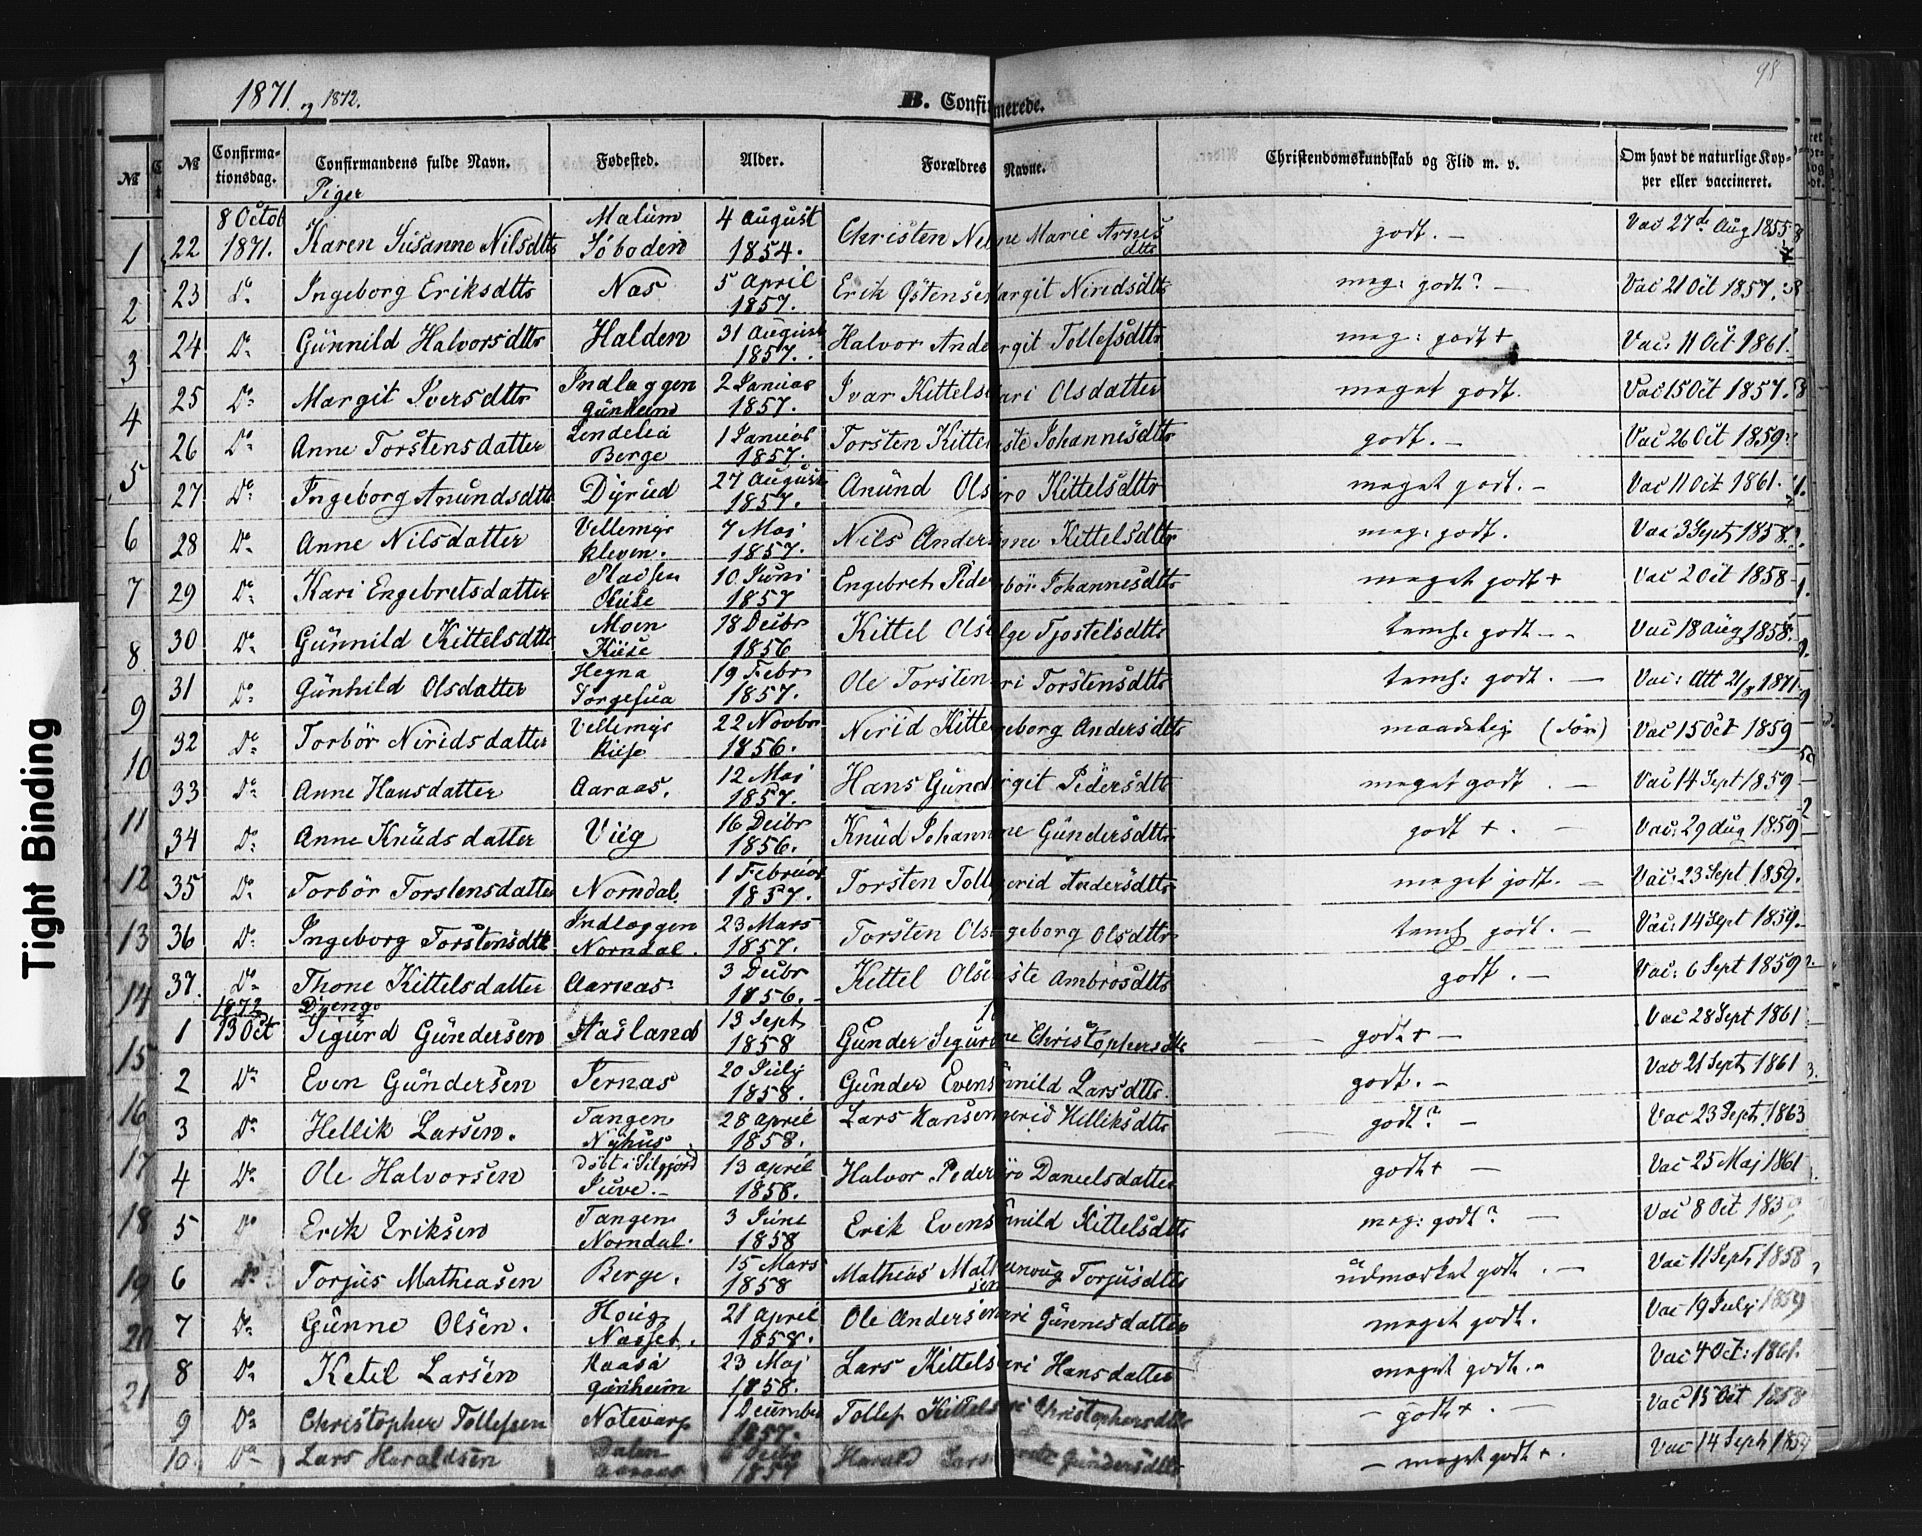 1871. og 1872.
B. Confirmerede.
98
№ Confirma-tionsdag. Confirmandens fulde Navn. Fødested. Alder. Forældres Navne. Christendomskundskab og Flid m. v. Om havt de naturlige Kop-per eller vaccineret.
Piger
22 8 Octob 1871. Karen Susanne Nilsdttr Malum Søboden 4 August 1854. Christen Ne ne Marie Arnes dttr godt. — Vac 27de Aug 1855
23 do Ingeborg Eriksdttr Nas 5 April 1857. Erik Østense argit Niridsdttr meg: godt? — Vac 21 Oct 1857.
24 Do Günnild Halvorsdttr Halden 31 August 1857. Halvor Ande rgit Tollefsdttr meg: godt + Vac: 11 Oct 1861.
25 Do Margit Iversdttr Indlæggen Günheim 2 Januar 1857. Ivar Kittels ari Olsdatter meget godt. Vac 15 Oct 1857.
26 Do Anne Torstensdatter Lendelia Berge 1 Januar 1857. Torsten Kitte ste Johannesdttr godt. — Vac 26 Oct 1859
27 Do Ingeborg Anundsdttr Dyrud 27 August 1857. Anund Ols ro Kittelsdttr meget godt. — Vac 11 Oct 1861.
28 Do Anne Nilsdatter Vellemyr Kleven. 7 Maj 1857. Nils Anders ne Kittelsdttr meg: godt. Vac 3 Sept 1858.
29 Do Kari Engebretsdatter Pladsen Kiise 10 Juni 1857 Engebret Peder bör Johannesdttr meget godt + Vac 2 Oct 1858
30 Do Günnild Kittelsdttr Moen Kiise 18 Decbr 1856 Kittel Ols lge Tjostelsdttr temh: godt — Vac 18 Aug 1858.
31 Do Günhild Olsdatter Hegna 19 Febr 1857. Ole Torsten ri Torstensdttr temh: godt. — Vac: Att 21/8 1871
32 Do Torbör Niridsdatter Vellemyr Kiise 22 Novbr 1856. Neriid Kitte geborg Andersdttr maadelig Vac 15 Oct 1859
33 Do Anne Hansdatter Aaraas. 12 Maj 1857. Hans Gund rgit Pedersdttr meget godt. — Vac 14 Sept 1859
34 Do Anne Knüdsdatter Viig 16 Decbr 1856. Knüd Johann ne Gündersdttr godt +. — Vac: 29 Aug 1859
35 Do Torbör Torstensdatter Norndal 1 Februar 1857. Torsten Toll gerid Andersdttr meget godt. — Vac: 23 Sept 1859.
36 Do Ingeborg Torstensdttr Indlæggen Norndal. 23 Mars 1857. Torsten Ols ngeborg Olsdttr temh godt. — Vac: 14 Sept 1859.
37. Do Thone Kittelsdatter Aaraas 3 Decbr 1856. Kittel Ols ste Ambrosdttr godt. — Vac: 6 Sept 1859
1872 Drenge
1 13 Oct Sigürd Gündersen Hasland 13 Sept 1858 Gunder Sigur ne Christophersdttr godt + — Vac 28 Sept 1861
2 Do Even Gündersen Ternas 20 July 1858. Günder Evens nnild Larsdttr. godt. — Vac 21 Sept 1861
3 Do Hellik Larsen. Tangen Nyhus 28 April 1858. Lars Hansen gerid Helliksdttr godt? — Vac 23 Sept 1863
4 Do Ole Halvorsen døbt i Silgjord Juve. — 13 April 1858. Halvor Peder ro Danielsdatter godt + — Vac 25 Maj 1861
5 Do Erik Eriksen Tangen Norndal. 3 June 1858 Erik Evens nnild Kittelsdttr meg: godt? — Vac 8 Oct 1859
6 Do Torjus Matheasen Berge. 15 Mars 1858 Mathias Mat sen unoug Torjusdttr udmærket godt. — Vac 11 Sept 1858
7 Do Gunne Olsen. Houg Nasset. 21 April 1858. Ole Andersen ari Gunnesdatter meget godt. Vac 19 July 1859
8 Do Ketel Larsen Raasa Gunheim 23 Maj 1858. Lars Kittels ari Hansdatter meget godt. — Vac 4 Oct: 1861.
9 Do Christopher Tollefsen Notevarp 1 December 1857. Tollef Kittels ri Christophersdttr — godt +. — Vac 15 Oct 1858
10. Do Lars Haraldsen Dalen Aaraas Decbr 1857 Harald Lars Gundersdttr — meget godt +. Vac 14 Sept 1859
1
2
3
4
5
6
7
8
9
10
11
12
13
14
15
16
17
18
19
20
21
Tight Binding